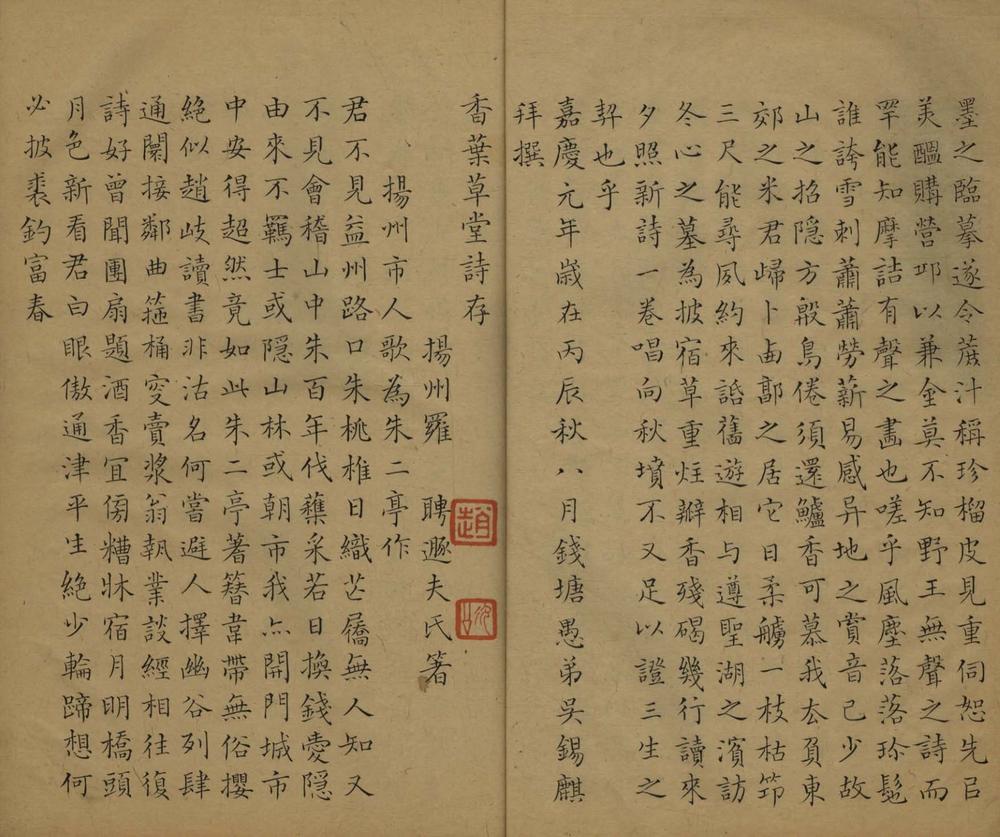 墨之臨摹遂令蔗汁稱珍榴皮見重伺恕先㠯
美醞購營邱以兼金莫不知野王無聲之詩而
罕能知摩詰有聲之畫也嗟乎風塵落落珍髢
誰誇雪刺蕭蕭勞薪易感异地之賞音已少故
山之招隱方殷鳥倦須還鱸香可慕我厺負東
郊之米君歸卜鹵郭之居它日柔艣一枝枯笻
三尺能尋夙約來話舊遊相与遵聖湖之濱訪
冬心之墓為披宿草重炷瓣香殘碣幾行讀來
夕照新詩一卷唱向秋墳不又足以證三生之
契也乎
嘉慶元年歲在丙辰秋八月錢塘愚弟吳錫麒
拜撰
香葉草堂詩存
揚州羅 聘遯夫氏著
趙
揚州市人歌為朱二亭作
君不見益州路口朱桃椎日織芒屩無人知又
不見會稽山中朱百年伐蘃采若日換錢愛隱
由來不羈士或隱山林或朝市我亦開門城市
中安得超然竟如此朱二亭著簪韋帶無俗攖
絕似趙岐讀書非沽名何嘗避人擇幽谷列肆
通闤接鄰曲箍桶䆫賣漿翁執業談經相往復
詩好曾聞團扇題酒香宜傍糟牀宿月明橋頭
月色新看君白眼傲通津平生絕少輪蹄想何
必披裘釣富春